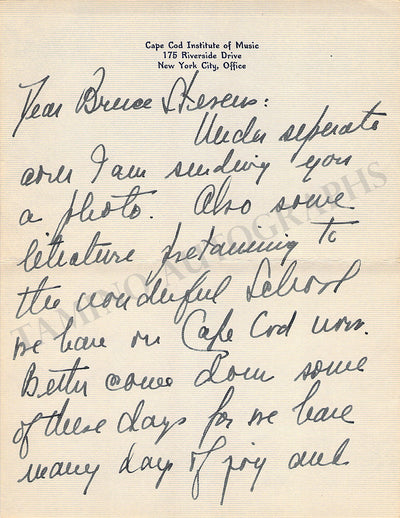 Cape Cod Institute of Music
175 Riverside Drive
New York City, Office
Dear Bruce Stevens:
Under seperate
cover I am sending you
a photo. Also some
literature pertaining to
the wonderful School
we have on Cape Cod now.
Better come down some
of these days for we have
many days of joy and
TAMINO AUTOGRAPHS